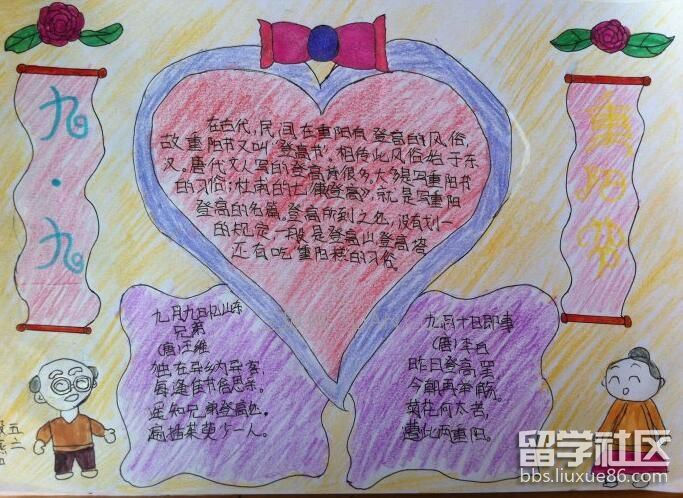 九·九
重阳节
在古代,民间在重阳有登高的风俗,
故重阳节又叫"登高节"。相传此风俗始于东
汉。唐代文人写的登高诗很多,大多是写重阳节
的习俗;杜甫的七律《登高》,就是写重阳
登高的名篇。登高所到之处,没有划一
的规定,一般是登高山、登高塔。
还有吃"重阳糕"的习俗。
九月九日忆山东
兄弟
(唐)王维
独在异乡为异客,
每逢佳节倍思亲。
遥知兄弟登高处,
遍插茱萸少一人。
九月十日即事
(唐)李白
昨日登高罢,
今朝再举觞。
菊花何太苦,
遭此两重阳。
五二
留学社区
bbs.liuxue86.com